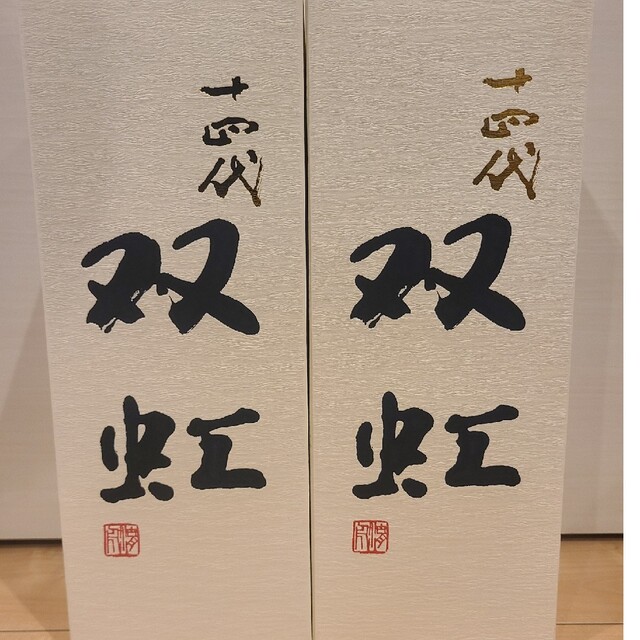 十四代
双虹
十四代
双虹